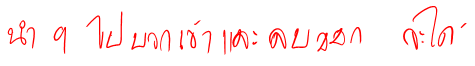 นำ 9 ไปบวกเข้าและลบออก จะได้